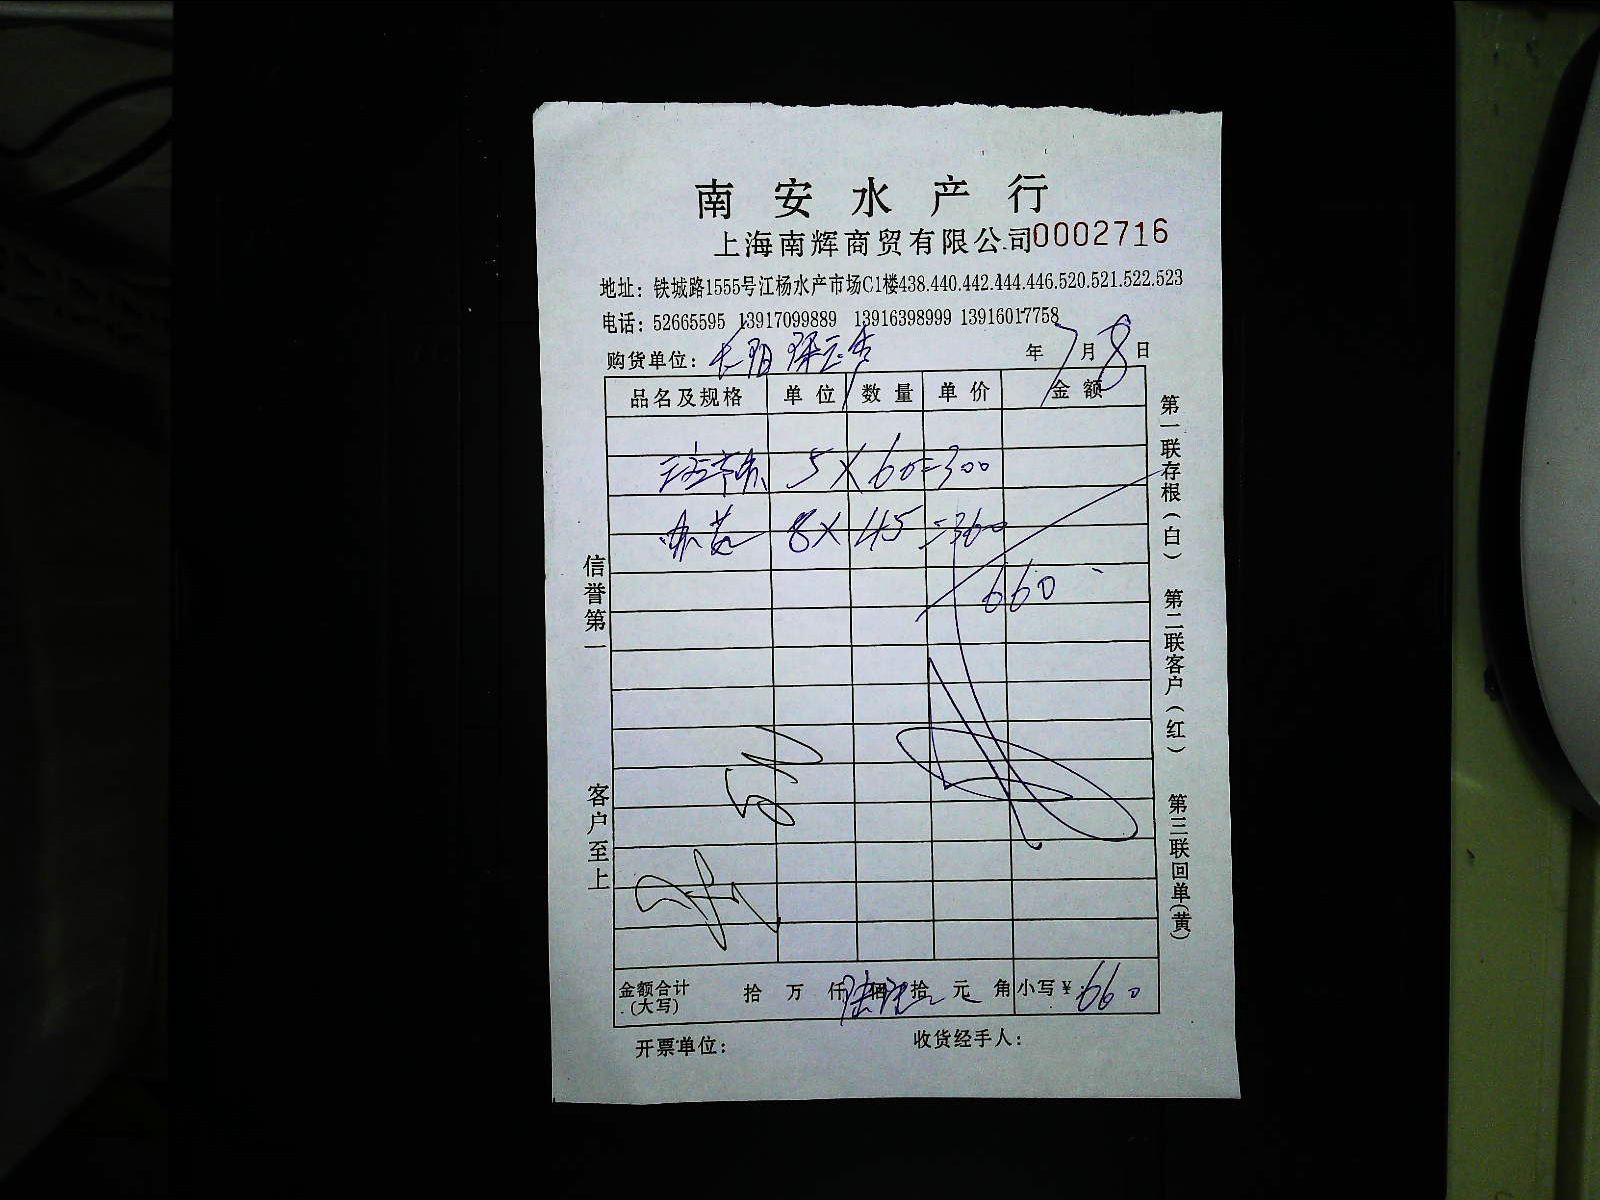 南安水产行
上海南辉商贸有限公司 0002716
地址：铁城路1555号江杨水产市场C1楼438.440.442.444.446.520.521.522.523
电话：52665595 13917099889 13916398999 13916017758
购货单位：
年 7 月 8 日
品名及规格 单位 数量 单价 金额
5 X 60=300
8 X 45 =360
660
信誉第一
客户至上
第一联存根（白） 第二联客户（红） 第三联回单（黄）
金额合计 拾 万 仟 佰 拾 元 角 小写￥：660
（大写）
开票单位： 收货经手人：